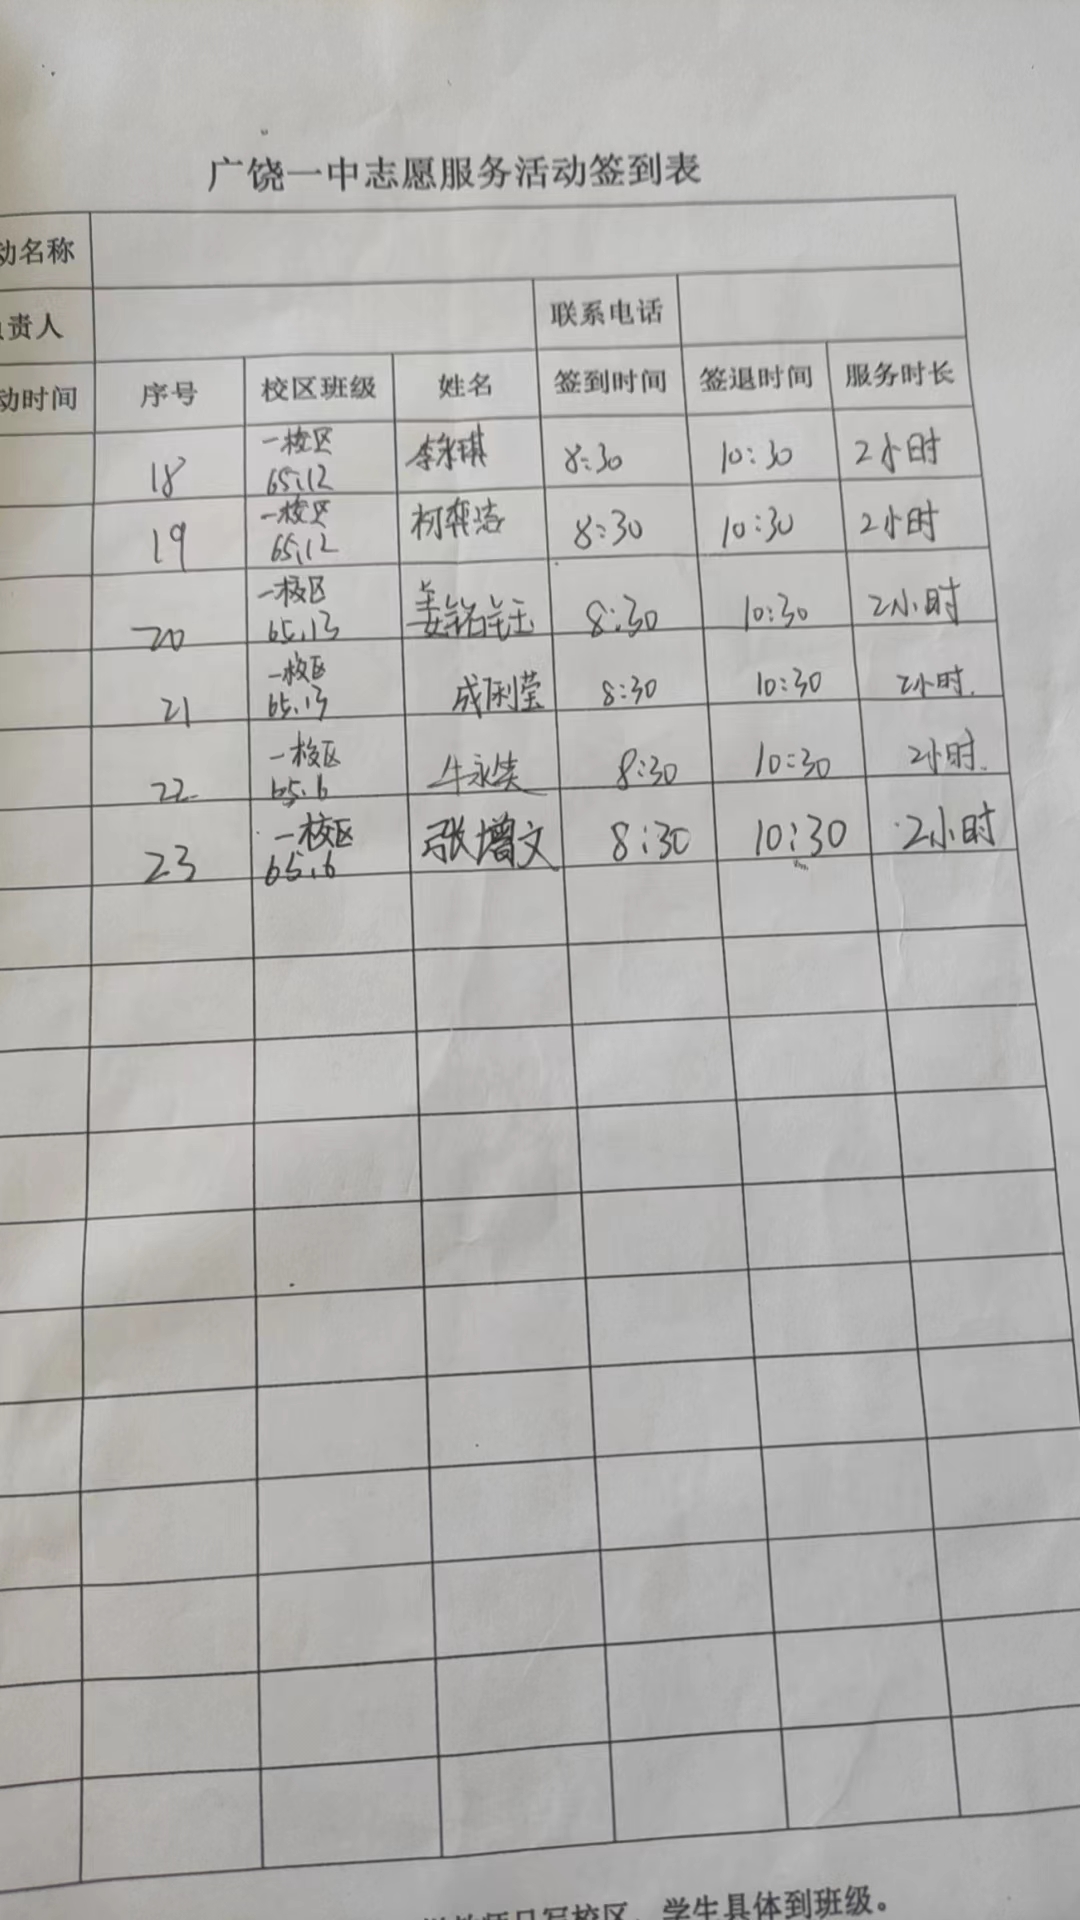 广饶一中志愿服务活动签到表
动名称
责人 联系电话
动时间 序号 校区班级 姓名 签到时间 签退时间 服务时长
18 一校区 65.12 李永琪 8:30 10:30 2小时
19 一校区 65.12 柯奕洁 8:30 10:30 2小时
20 一校区 65.13 姜铭钰 8:30 10:30 2小时
21 一校区 65.13 成俐莹 8:30 10:30 2小时.
22 一校区 65.6 牛永 8:30 10:30 2小时.
23 一校区 65.6 张增文 8:30 10:30 2小时
教师只写校区，学生具体到班级。